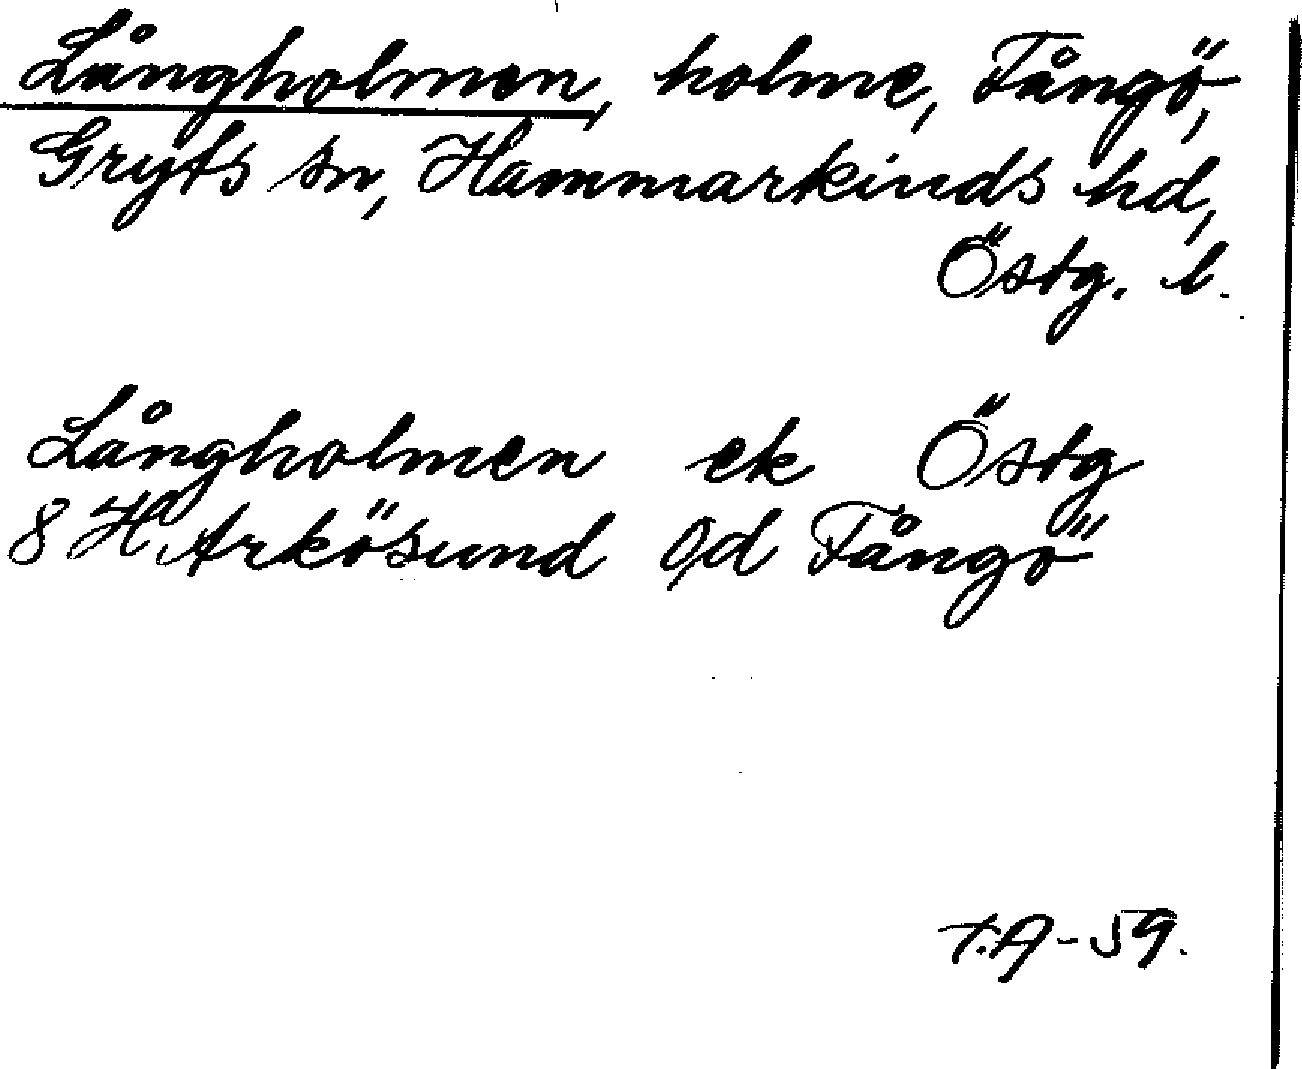 Långholmen, holme, Fångö,
Gryts sn, Hammarkinds hd,
Östg. l.
Långholmen ek Östg
8 H Arkösund 9d Fångö
F.A-59.